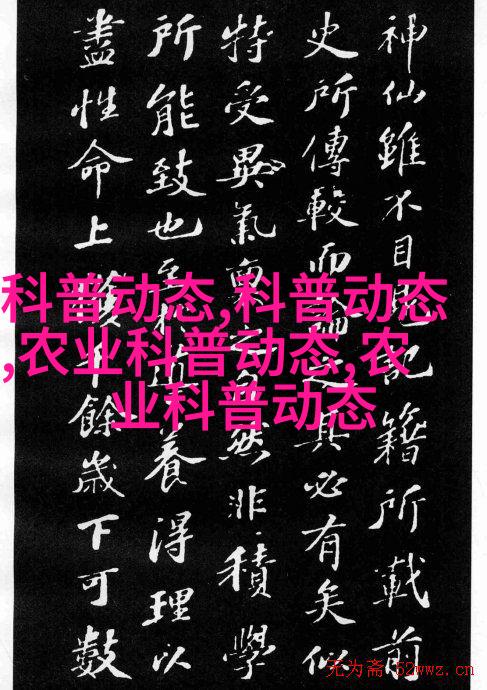 神仙雖不目見記籍所載前
史所傳較而論之其必有矣似
特受異氣稟之自然非積學
所能致也至於導養得理以
盡性命上獲千餘歲下可數
科普动态,科普动态
,农业科普动态,农
业科普动态
无为斋 52wwz.cn